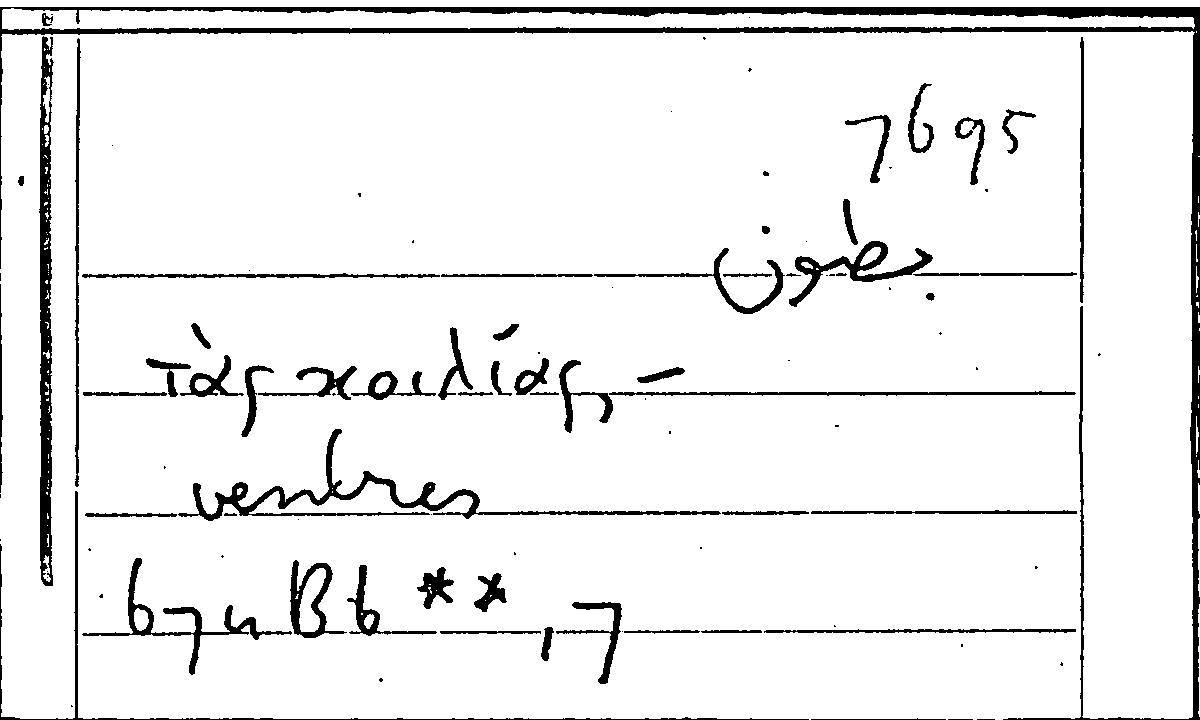 7695
بطون
τὰς κοιλίας, –
ventres
67u B6 **, 7